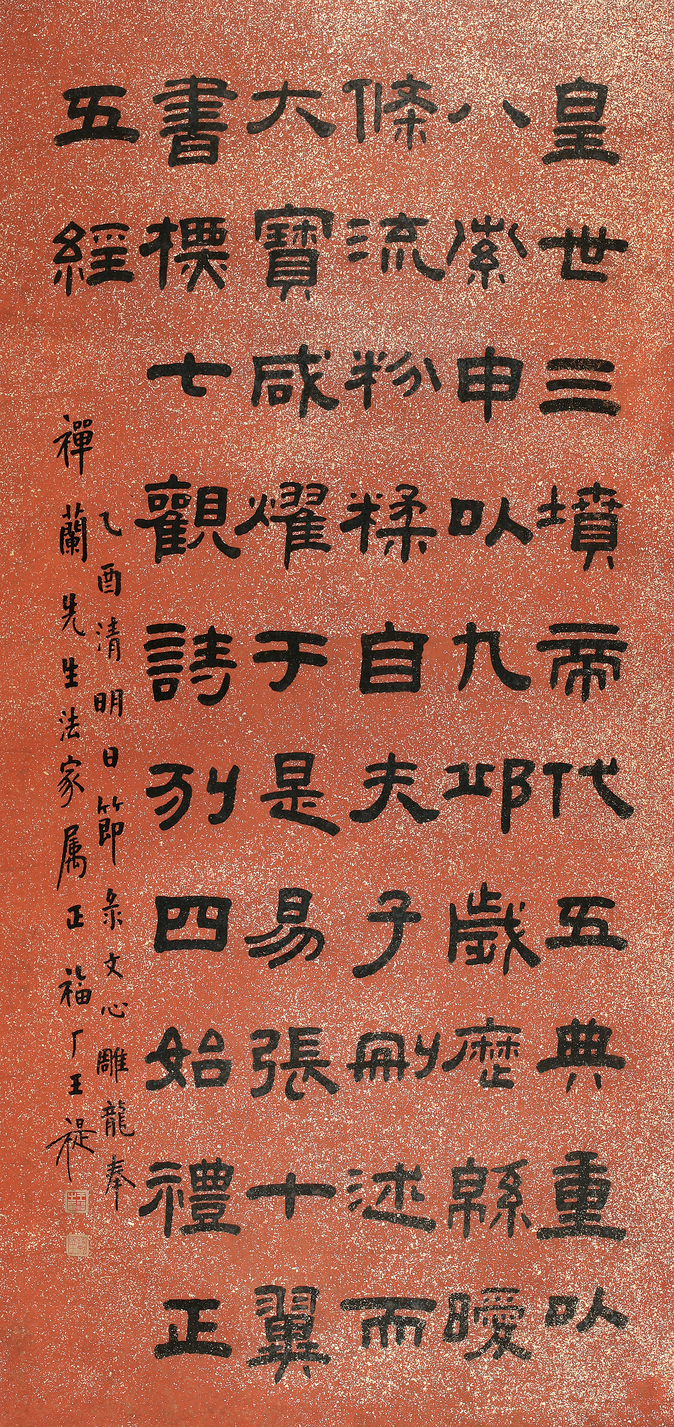 皇世三墳帝代五典重以
八索申以九邱歲歷緜曖
條流粉糅自夫子刪述而
大寶咸燿于是易張十翼
書標七觀詩列四始禮正
五經
乙酉清明日節彔文心雕龍奉
禪蘭先生法家属正福厂王禔